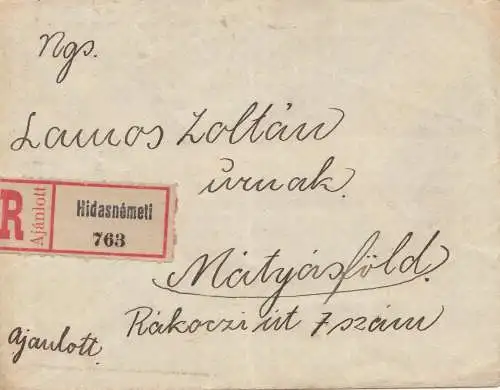 Ngs.
Lamos Zoltán
úrnak.
R Ajánlott
Hidasnémeti
763
Mátyásföld.
Rákoczi út 7 szám
Ajanlott.